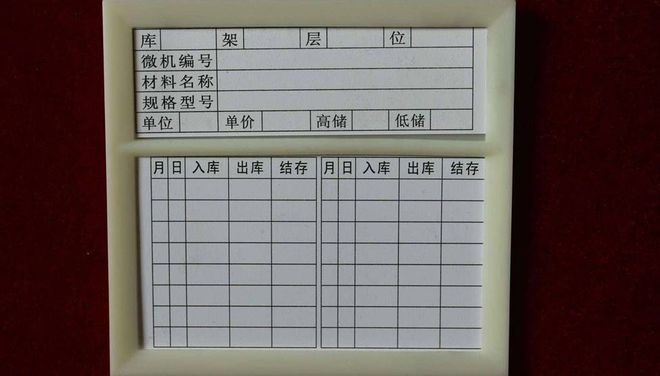 库 架 层 位
微机编号
材料名称
规格型号
单位 单价 高储 低储
月 日 入库 出库 结存 月 日 入库 出库 结存